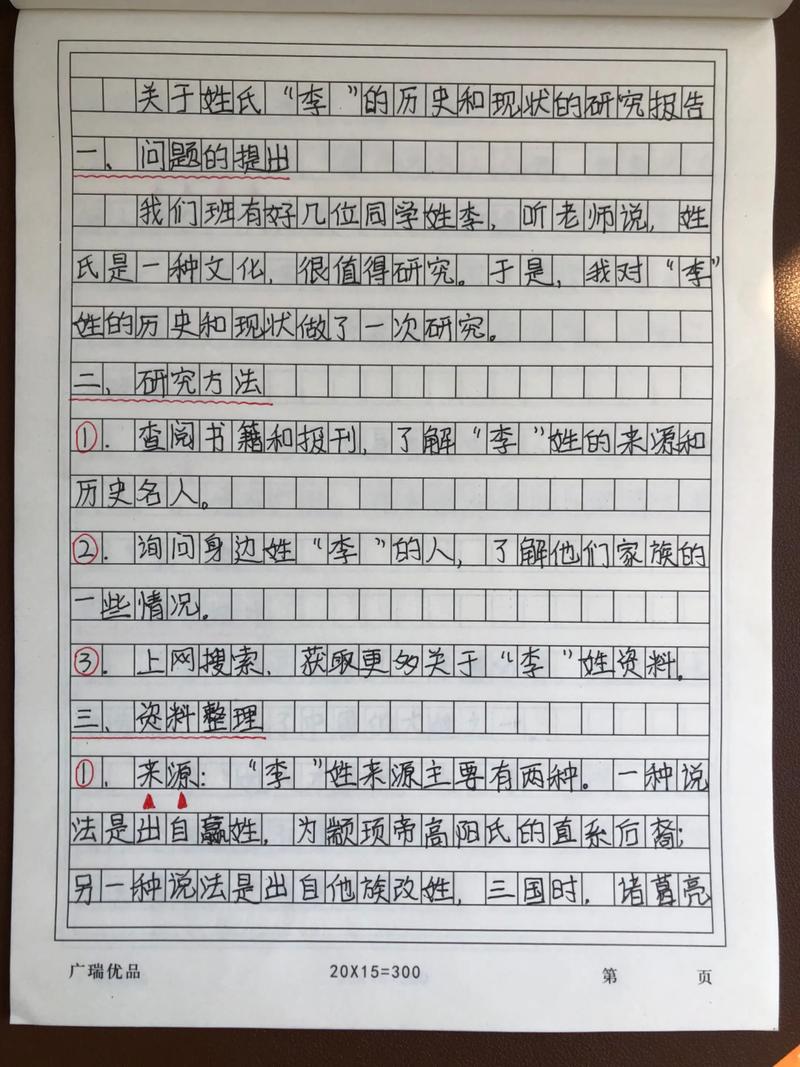 关于姓氏“李”的历史和现状的研究报告
一、问题的提出
我们班有好几位同学姓李，听老师说，姓
氏是一种文化，很值得研究。于是，我对“李”
姓的历史和现状做了一次研究。
二、研究方法
①．查阅书籍和报刊，了解“李”姓的来源和
历史名人。
②．询问身边姓“李”的人，了解他们家族的
一些情况。
③．上网搜索，获取更多关于“李”姓资料。
三、资料整理
①．来源：“李”姓来源主要有两种。一种说
法是出自嬴姓，为颛顼帝高阳氏的直系后裔；
另一种说法是出自他族改姓，三国时，诸葛亮
广瑞优品 20X15=300 第 页